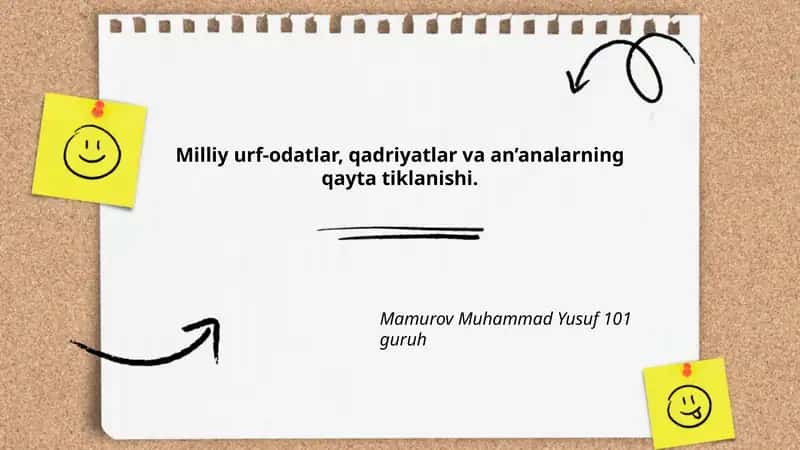 Milliy urf-odatlar, qadriyatlar va an’analarning
qayta tiklanishi.
Mamurov Muhammad Yusuf 101
guruh